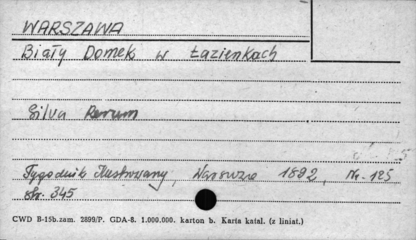 WARSZAWA
Biały Domek w Łazienkach
Silva Rerum
Tygodnik Ilustrowany, Warszawa 1892, Nr. 125
str. 345
CWD B-15b.zam. 2899/P. GDA-8. 1.000.000. karton b. Karta katal. (z liniat.)